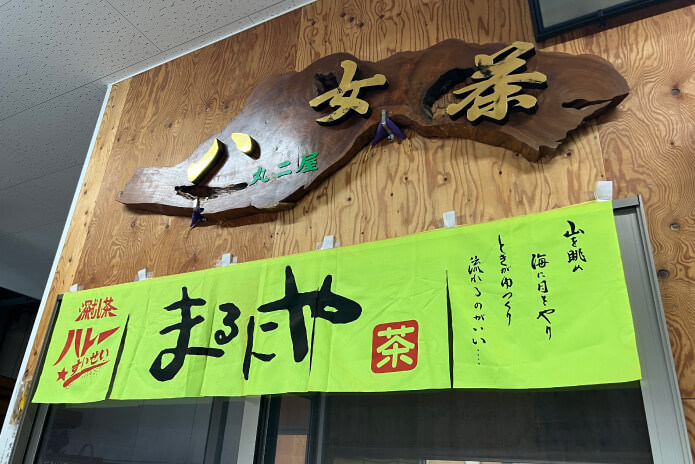 八女茶
丸二屋
深むし茶
ハレー
すいせい
まるにや
茶
山を眺め
海に目をやり
ときがゆっくり
流れるのがいい……